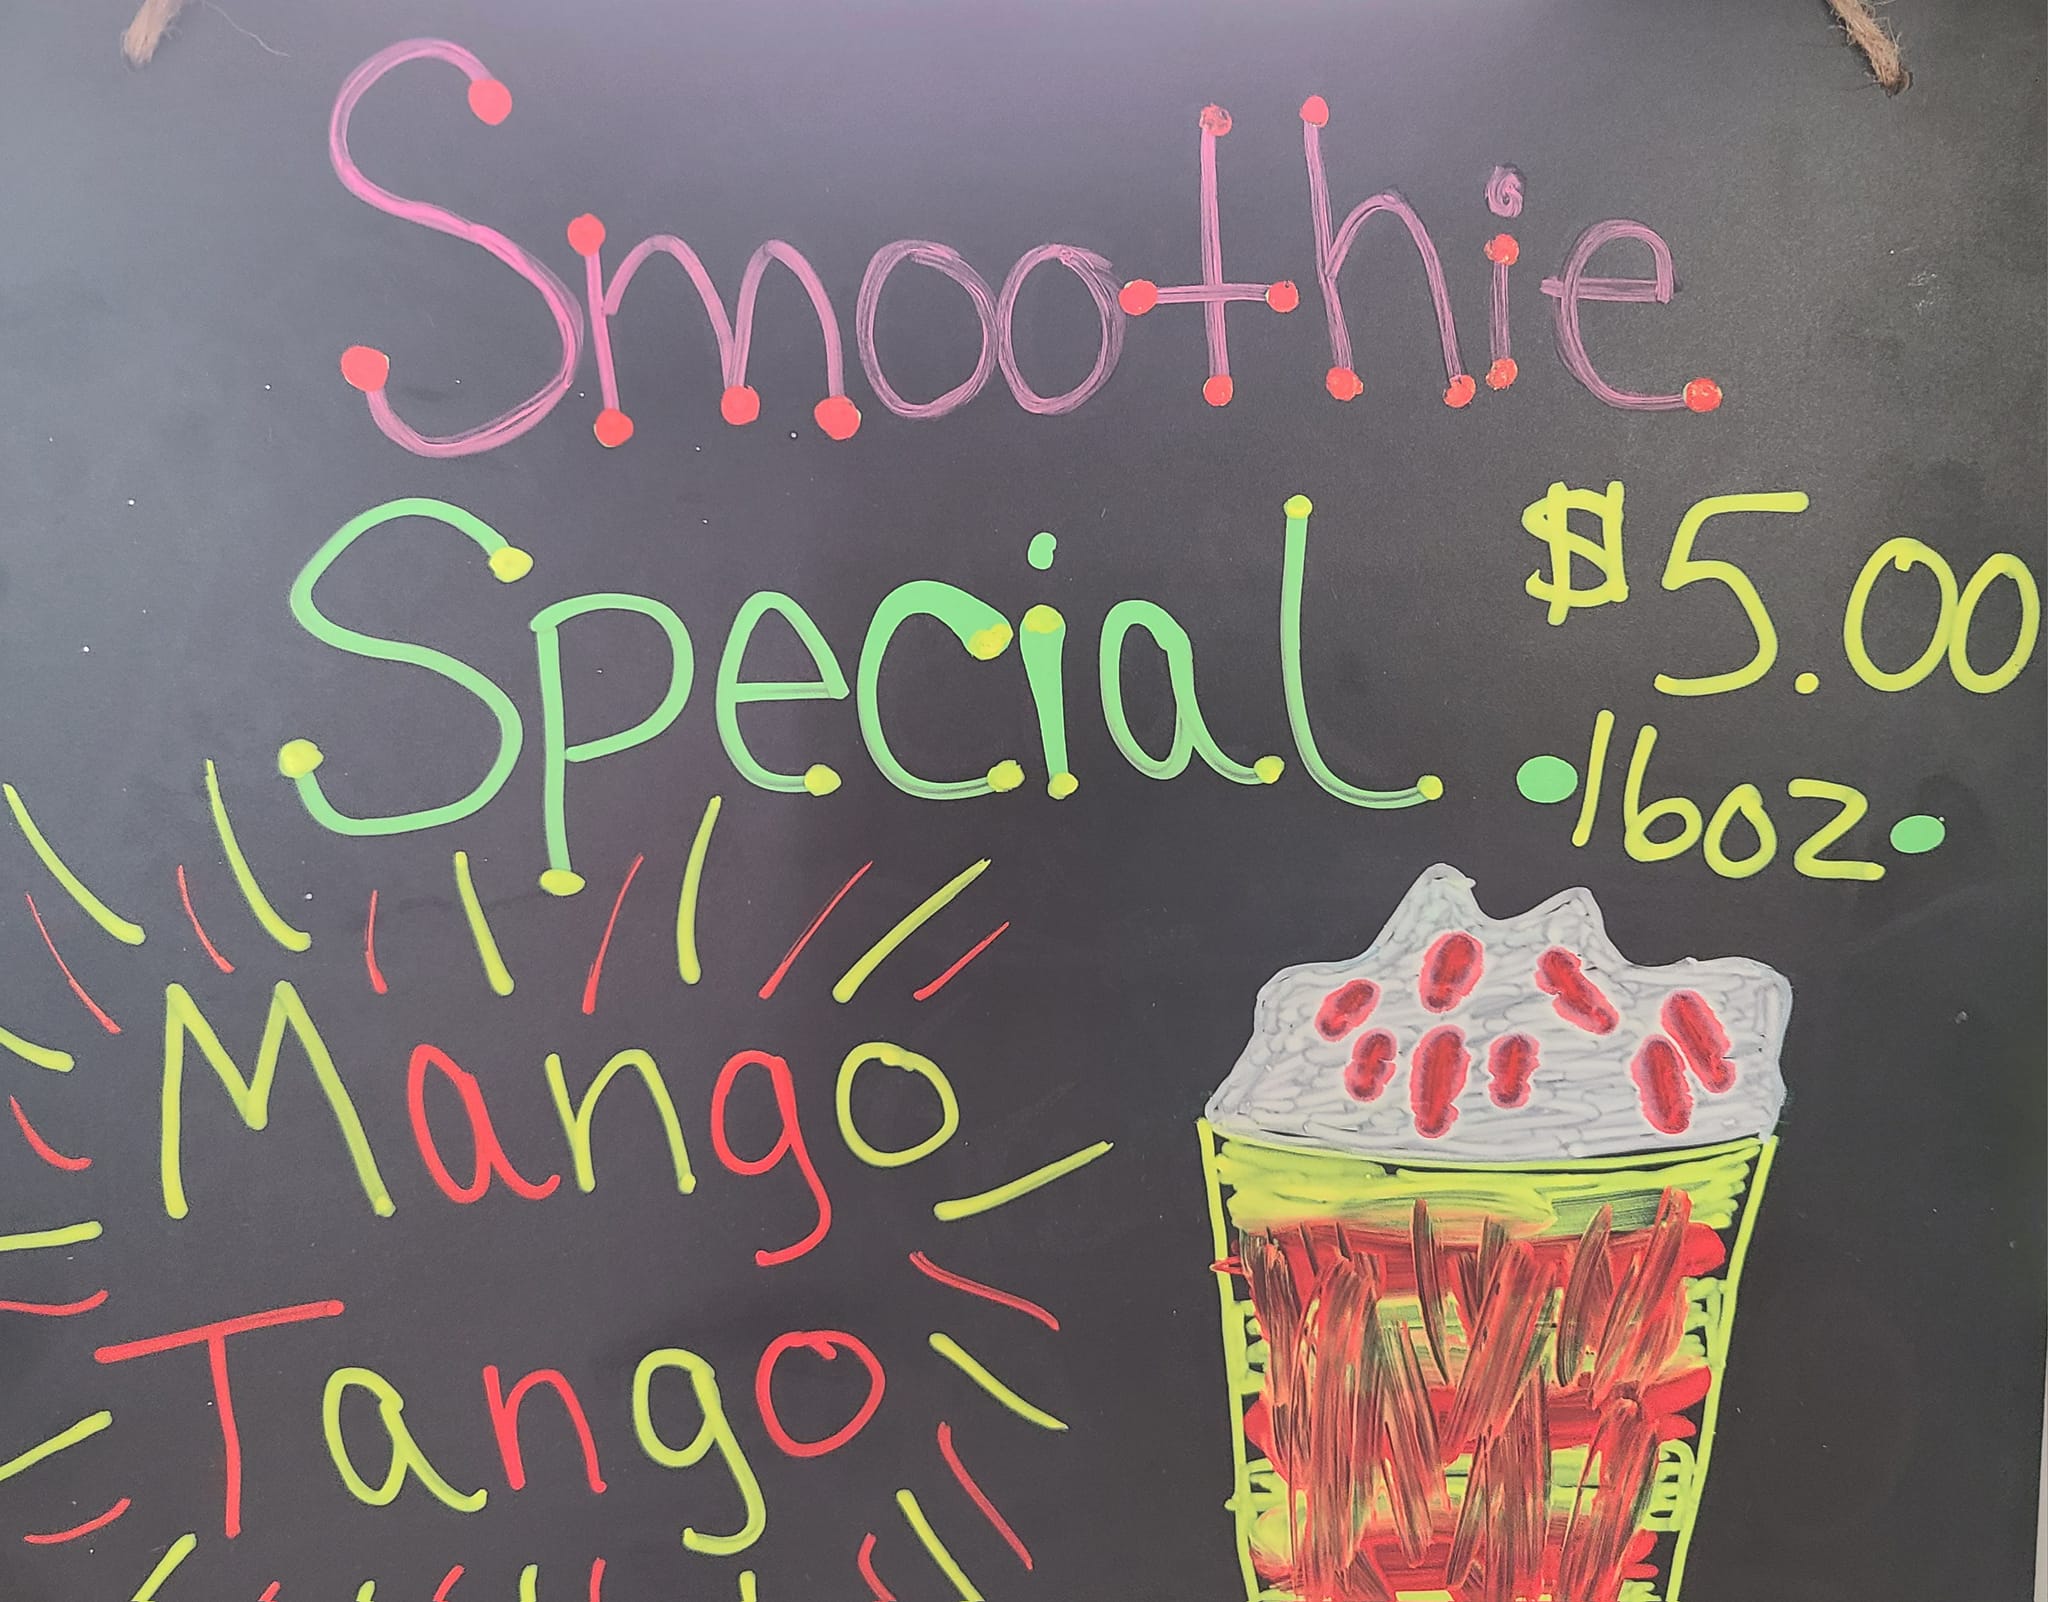 Smoothie
Special
$5.00
16oz
Mango
Tango